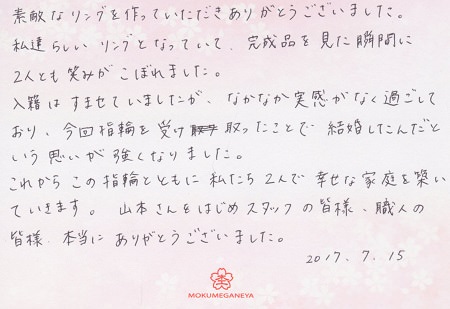 素敵なリングを作っていただきありがとうございました。
私達らしいリングとなっていて、完成品を見た瞬間に
2人とも笑みがこぼれました。
入籍はすませていましたが、なかなか実感がなく過ごして
おり、今回指輪を受け取ったことで結婚したんだと
いう思いが強くなりました。
これからこの指輪とともに私たち2人で幸せな家庭を築い
ていきます。山本さんをはじめスタッフの皆様、職人の
皆様、本当にありがとうございました。
2017.7.15
MOKUMEGANEYA